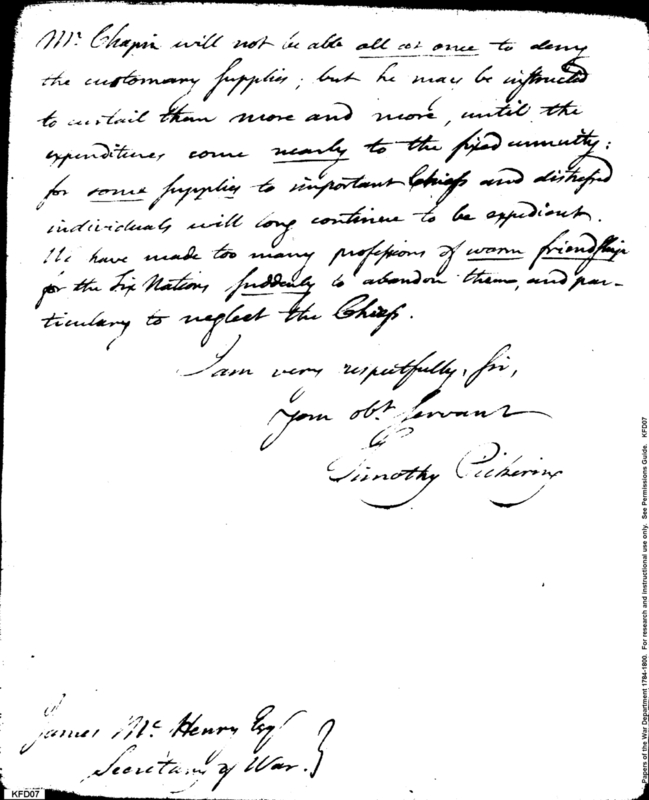 Mr. Chapin will not be able all at once to deny
the customary supplies; but he may be instructed
to curtail them more and more, until the
expenditures come nearly to the fixed annuity:
for some supplies to important Chiefs and distressed
individuals will long continue to be expedient.
We have made too many professions of warm friendship
for the Six Nations suddenly to abandon them, and par-
ticulary to neglect the Chiefs.
I am very respectfully, Sir,
your obt. Servant
Timothy Pickering
James McHenry Esqr
Secretary of War.
KFD07
Papers of the War Department 1784-1800. For research and instructional use only. See Permissions Guide. KFD07